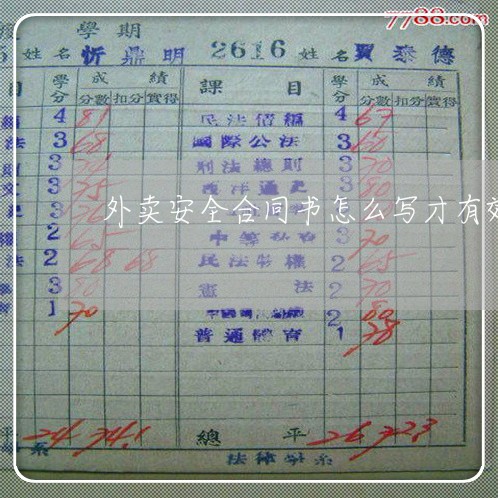 7788.com
學期
5 姓名 忻鼎明 2616 姓名 賈泰德
目 學分 成績 課目 學分 成績
分數 扣分 實得 分數 扣分 實得
4 81 民法債編 4 67
法 3 68 國際公法 3 60
3 刑法總則 3 70
3 75 西洋通史 3 80
外卖安全合同书怎么写才有效
2 65 3 70
法 2 68 68 民法物權 2 65
3 80 憲法 2 70
1 70 2 80
普通體育 1 78
平 24 74.1 總平 26 72.3
系 法律學系